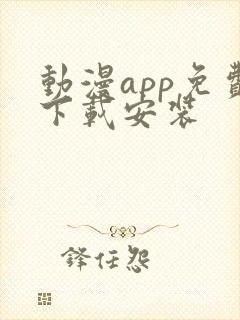 動漫app免費
下載安裝
鋒任怨